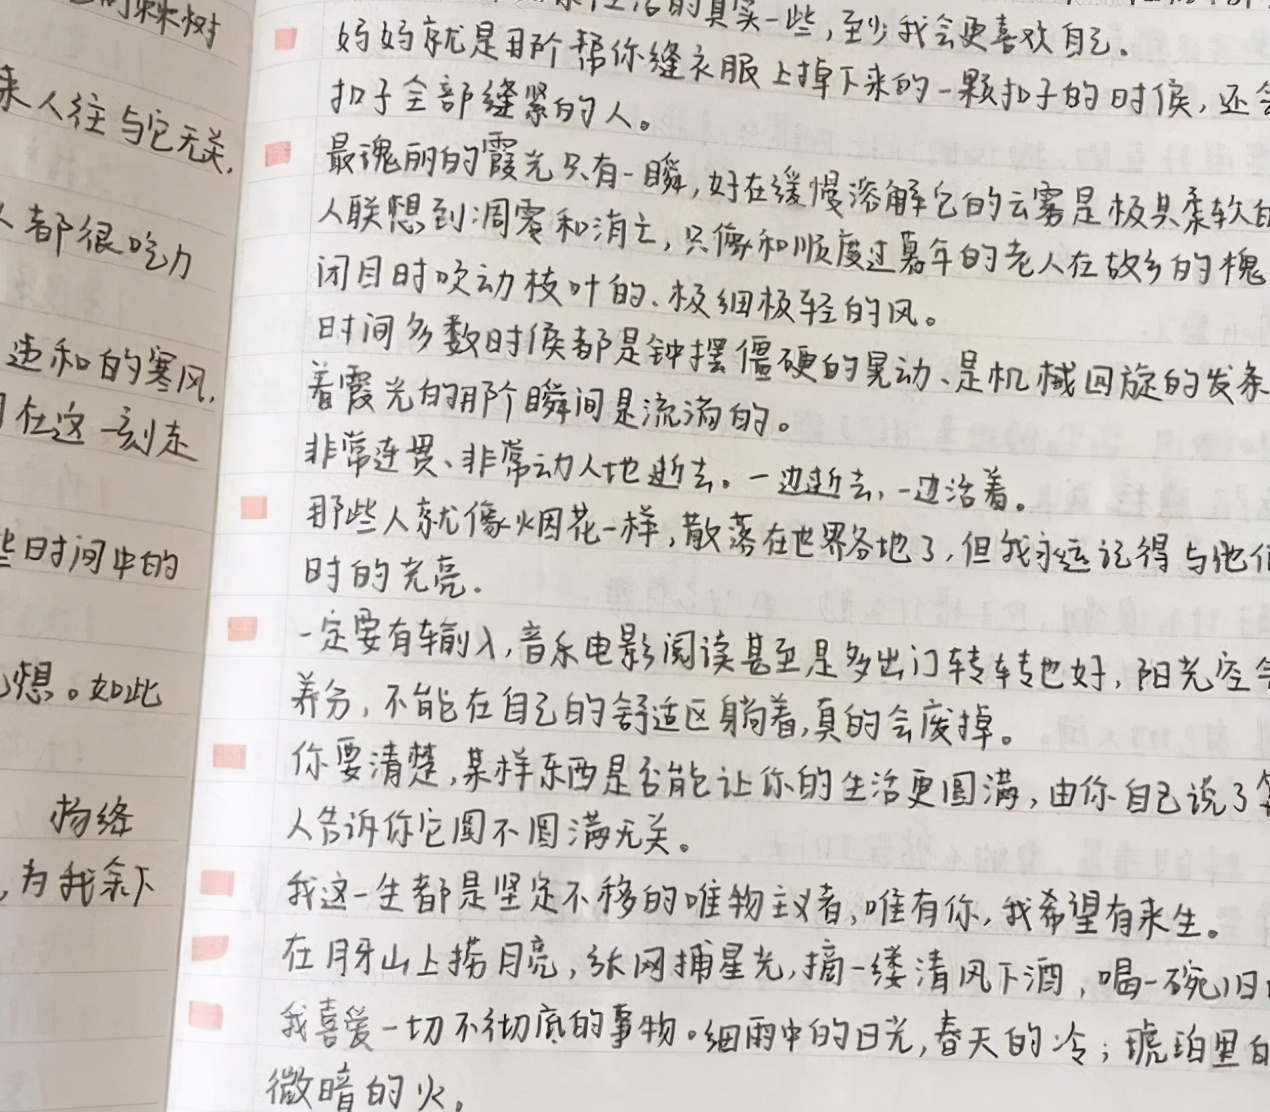 的
树
来人往与它无关,
人都很吃力
违和的寒风,
在这一刻走
些日时间中的
想。如此
杨绛
,为我余下
生活的真实一些,至少我会更喜欢自己。
妈妈就是那个帮你缝衣服上掉下来的一颗扣子的时候,还会
扣子全部缝紧的人。
最瑰丽的霞光只有一瞬,好在缓慢溶解它的云雾是极其柔软的
人联想到凋零和消亡,只像和顺度过暮年的老人在故乡的槐
闭目时吹动枝叶的、极细极轻的风。
时间多数时候都是钟摆僵硬的晃动、是机械回旋的发条
着霞光的那个瞬间是流淌的。
非常连贯、非常动人地逝去。一边逝去,一边活着。
那些人就像烟花一样,散落在世界各地了,但我永远记得与他们
时的光亮.
一定要有输入,音乐电影阅读甚至是多出门转转也好,阳光空气
养分,不能在自己的舒适区躺着,真的会废掉。
你要清楚,某样东西是否能让你的生活更圆满,由你自己说了算
人告诉你它圆不圆满无关。
我这一生都是坚定不移的唯物主义者,唯有你,我希望有来生。
在月牙山上捞月亮,张网捕星光,摘一缕清风下酒,喝一碗旧
我喜爱一切不彻底的事物。细雨中的日光,春天的冷;琥珀里的
微暗的火。